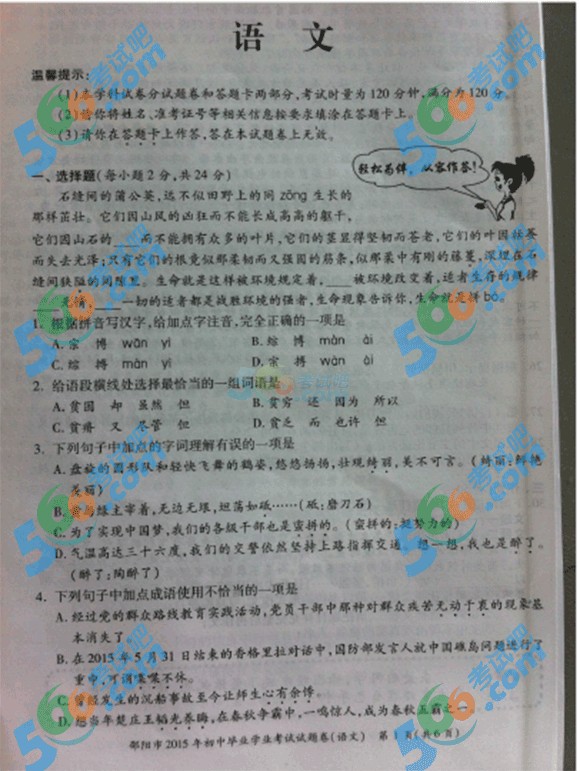 语 文
温馨提示:
(1)本学科试卷分试题卷和答题卡两部分,考试时量为120分钟,满分为120分
(2)请你将姓名、准考证号等相关信息按要求填涂在答题卡上。
(3)请你在答题卡上作答,答在本试题卷上无效。
轻松为伴,从容作答!
一、选择题(每小题2分,共24分)
石缝间的蒲公英,远不似田野上的同 zōng 生长的
那样茁壮。它们因山风的凶狂而不能长成高高的躯干,
它们因山石的____而不能拥有众多的叶片,它们的茎显得坚韧而苍老,它们的叶因枯萎
而失去光泽;只有它们的根竟似那柔韧而又强固的筋条,似那柔中有刚的藤蔓,深埋在石
缝间狭隘的间隙里。生命就是这样被环境规定着,____被环境改变着,适者生存的规律
____无情,____一切的适者都是战胜环境的强者,生命现象告诉你,生命就是拼 bó。
1. 根据拼音写汉字,给加点字注音,完全正确的一项是
A. 宗 搏 wān yì B. 综 搏 màn ài
C. 综 膊 màn yì D. 宗 搏 wàn ài
2. 给语段横线处选择最恰当的一组词语是
A. 贫困 却 虽然 但 B. 贫穷 还 因为 所以
C. 贫瘠 又 尽管 但 D. 贫乏 而 也许 但
3. 下列句子中加点的字词理解有误的一项是
A. 盘旋的圆形队和轻快飞舞的鹤姿,悠悠扬扬,壮观绮丽,美不可言。(绮丽:鲜艳
美丽)
B. 黄与绿主宰着,无边无垠,坦荡如砥……(砥:磨刀石)
C. 为了实现中国梦,我们的各级干部也是蛮拼的。(蛮拼的:挺努力的)
D. 气温高达三十六度,我们的交警依然坚持上路指挥交通。想一想,我也是醉了。
(醉了:陶醉了)
4. 下列句子中加点成语使用不恰当的一项是
A. 经过党的群众路线教育实践活动,党员干部中那种对群众疾苦无动于衷的现象基
本消失了
B. 在2015年5月31日结束的香格里拉对话中,国防部发言人就中国礁岛问题进行了
重申,可谓喋喋不休。
C. 曾经发生的沉船事故至今让师生心有余悸。
D. 想当年楚庄王韬光养晦,在春秋争霸中,一鸣惊人,成为春秋五霸之一
邵阳市2015年初中毕业学业考试试题卷(语文) 第1页(共6页)
566考试吧
.com